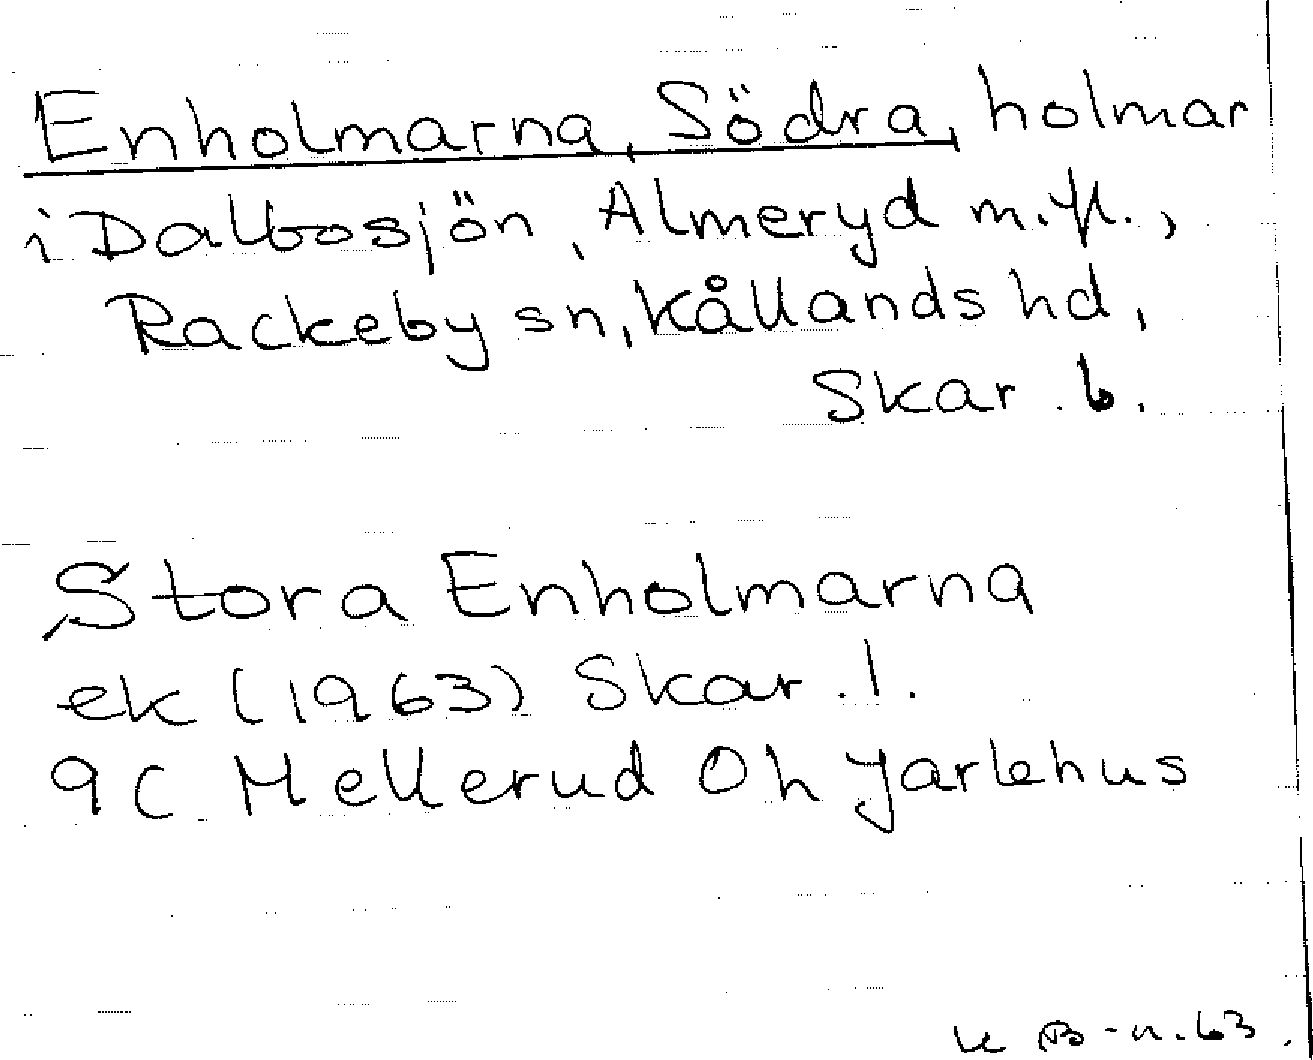 Enholmarna, Södra, holmar
i Dalbosjön, Almeryd m.fl.,
Rackeby sn, Kållands hd,
Skar. b.
Stora Enholmarna
ek (1963) Skar. l.
9C Mellerud 0h Jarlehus
63.